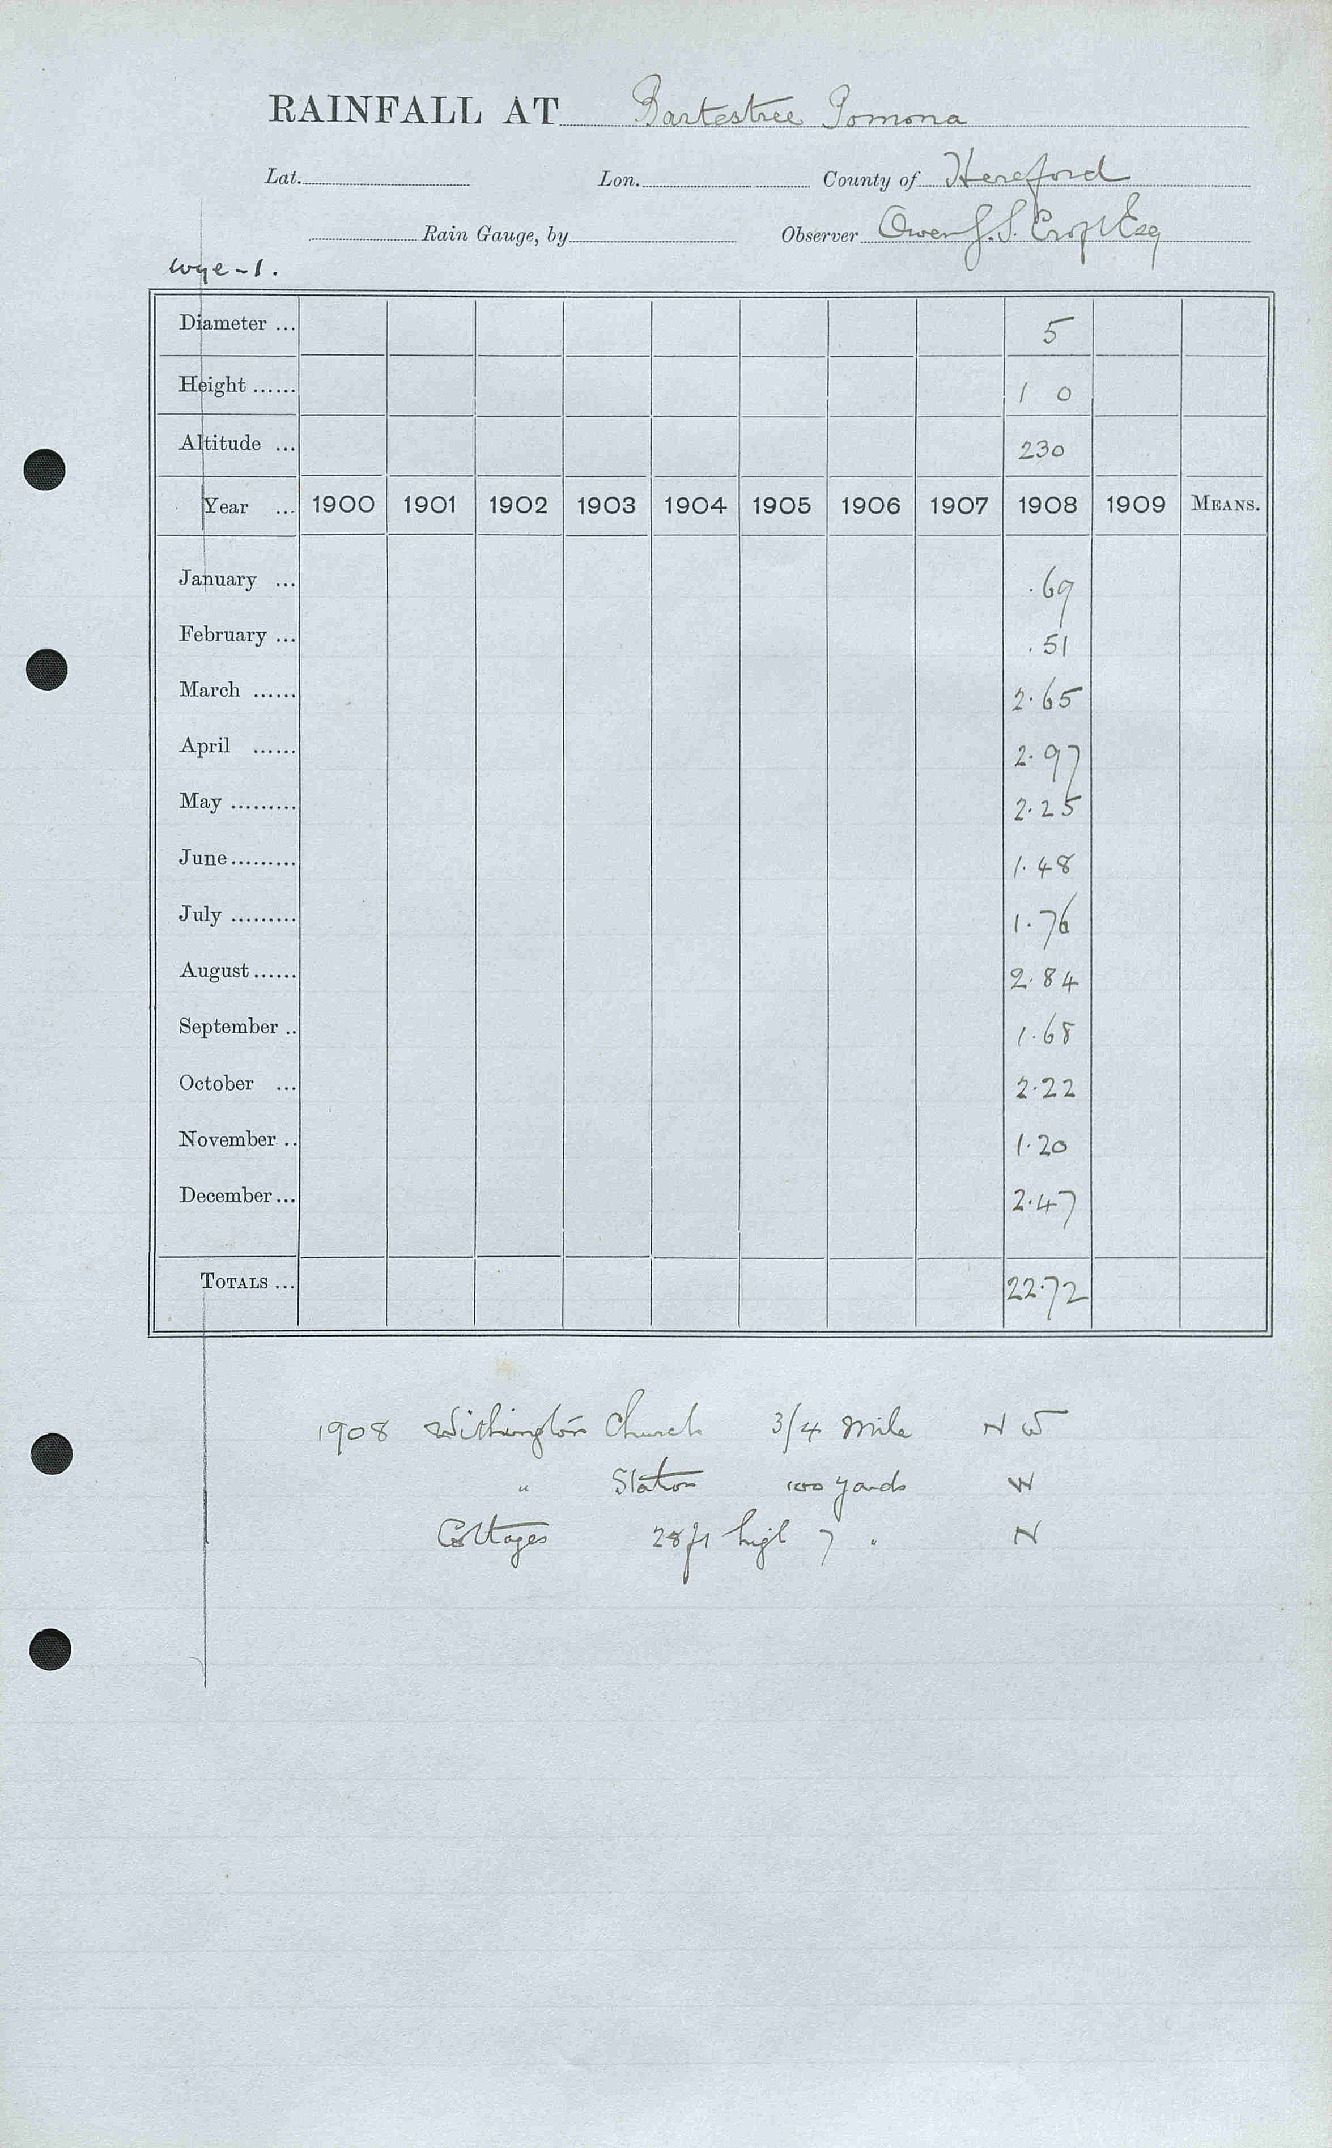 RAINFALL AT Bartestree Pomona
Lat. Lon. County of Hereford
Rain Gauge, by Observer Owen G. S. Croft Esq
Wye - 1.
Diameter ... 5
Height ...... 1 0
Altitude ... 230
Year ... 1900 1901 1902 1903 1904 1905 1906 1907 1908 1909 MEANS.
January ... .69
February ... .51
March ...... 2.65
April ...... 2.97
May ......... 2.25
June ......... 1.48
July ......... 1.76
August ...... 2.84
September .. 1.68
October ... 2.22
November .. 1.20
December ... 2.47
TOTALS ... 22.72
1908 Withington Church 3/4 Mile N W
" Station 100 yards W
Cottages 28 ft high 7 " N